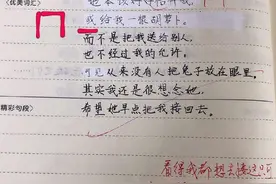 (优美词汇)
或给我一根胡萝卜。
而不是把我送给别人,
也不经过我的允许。
可见从来没有人把兔子放在眼里,
其实我还是很想念她,
(精彩句段)
希望她早点把我接回去。
看得我都想去接这吧